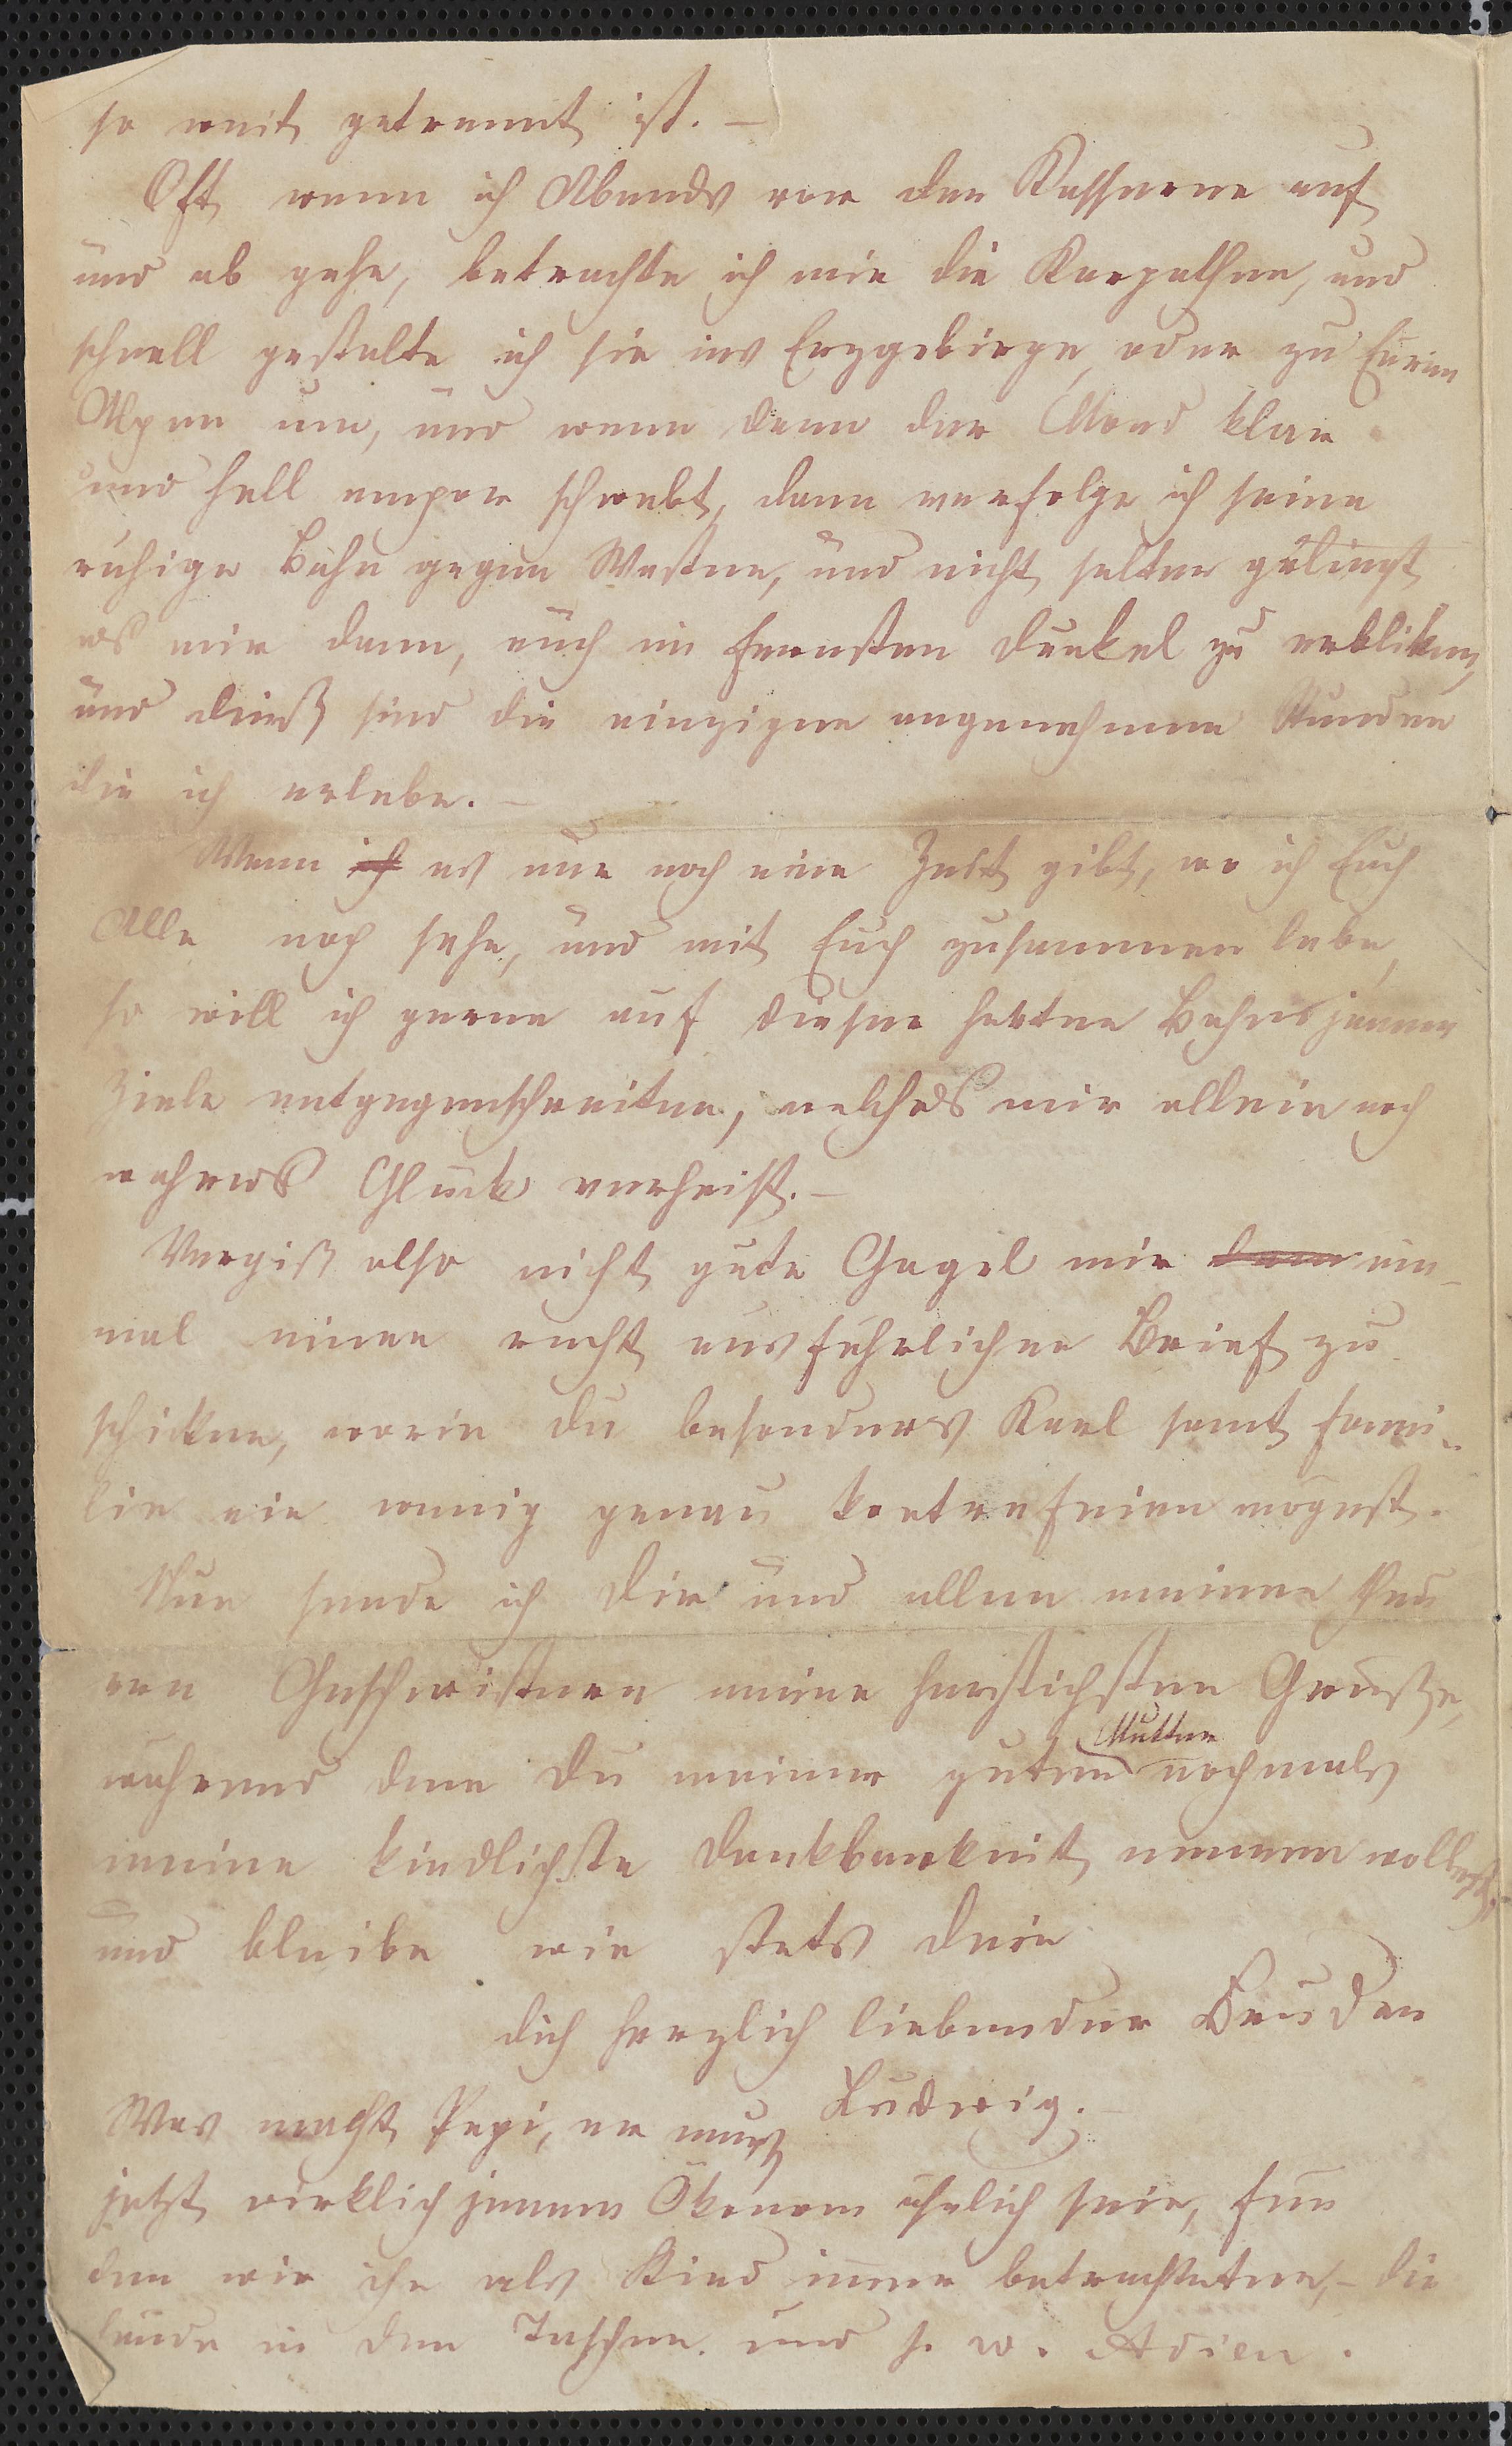 so weit getrennt ist. —
Oft wenn ich Abends vor der Kasserne auf
und ab gehe, betrachte ich mir die Karpathen, und
schnell gestalte ich sie ins Erzgebirge, oder zu Euren
Alpen um, und wenn dann der Mond klar
und hell empor schwebt, dann verfolge ich seine
ruhige Bahn gegen Westen, und nicht selten gelingt
es mir dann, euch im fernsten Dunkel zu erbliken,
und dieß sind die einzigen angenehmen Stunden
die ich erlebe. —
Wenn ich es nur noch eine Zeit gibt, wo ich Euch
Alle noch sehe, und mit Euch zusammen lebe,
so will ich gerne auf dieser harten Bahn jenem
Ziele entgegenschreiten, welches mir allein noch
wahres Glück verheist. —
Vergiß also nicht gute Gagel mir dann ein-
mal einen recht ausführlichen Brief zu
schicken, worin du besonders Karl samt Fami-
lie ein wenig genau kontrefeien mögest.
Nun sende ich Dir und allen meinen theu
ren Geschwistern meine herzlichsten Grüße,
während dem Du meiner guten Mutter nochmals
meine kindlichste Dankbarkeit nennen wollest,
und bleibe wie stets Dein
dich herzlich liebender Bruder
Ludwig. —
Was macht Pepi, er muß
jetzt wirklich jenem Ökonom ähnlich sein, für
den wir ihn als Kind immer betrachteten, – die
Hände in den Taschen. und s. w. Adieu.